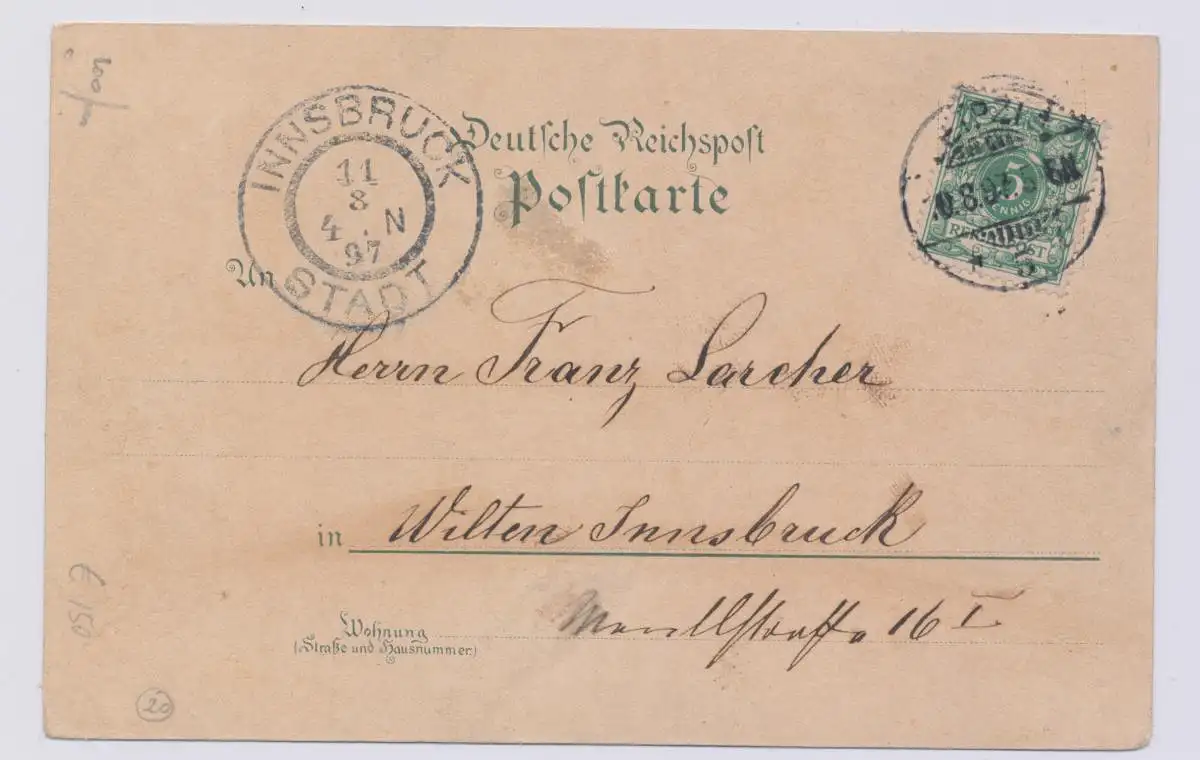 INNSBRUCK
11
8
4 . N
97
STADT
Deutsche Reichspost
Postkarte
5
An
Herrn Franz Larcher
in Wilten Innsbruck
Wohnung
(Straße und Hausnummer)
16 I
€ 150
20